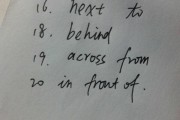 16. next to
18. behind
19. across from
20 in front of.